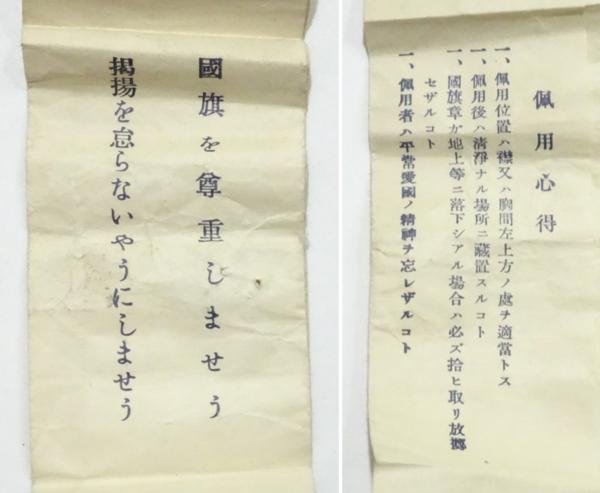 國旗を尊重しませう
掲揚を怠らないやうにしませう
佩用心得
一、佩用位置ハ襟又ハ胸間左上方ノ處チ適當トス
一、佩用後ハ清淨ナル場所ニ藏置スルコト
一、國旗章ガ地上等ニ落下シアル場合ハ必ズ拾ヒ取リ放擲
セザルコト
一、佩用者ハ平常愛國ノ精神チ忘レザルコト